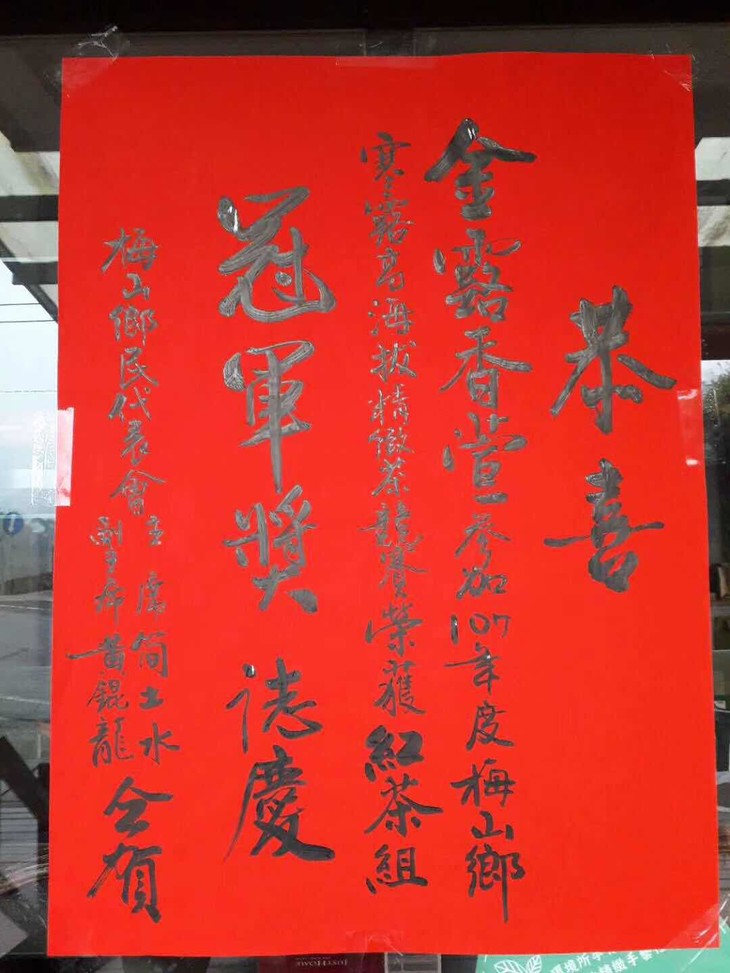 恭喜
金露香萱參加107年度梅山鄉
寒露高海拔精緻茶競賽榮獲紅茶組
冠軍獎 誌慶
梅山鄉民代表會主席簡土水
副主席黃錕龍
仝賀
JUSTHOME